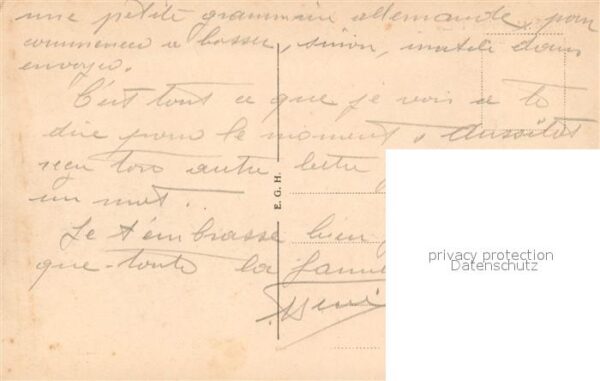 une petite grammaire allemande pour
commencer a bosser, sinon, inutile d'en
envoyer.
C'est tout ce que je vois a te
dire pour le moment. Aussitôt
reçu ton autre lettre
un mot.
Je t'embrasse bien
que toute la famil
E. G. H.
privacy protection
Datenschutz